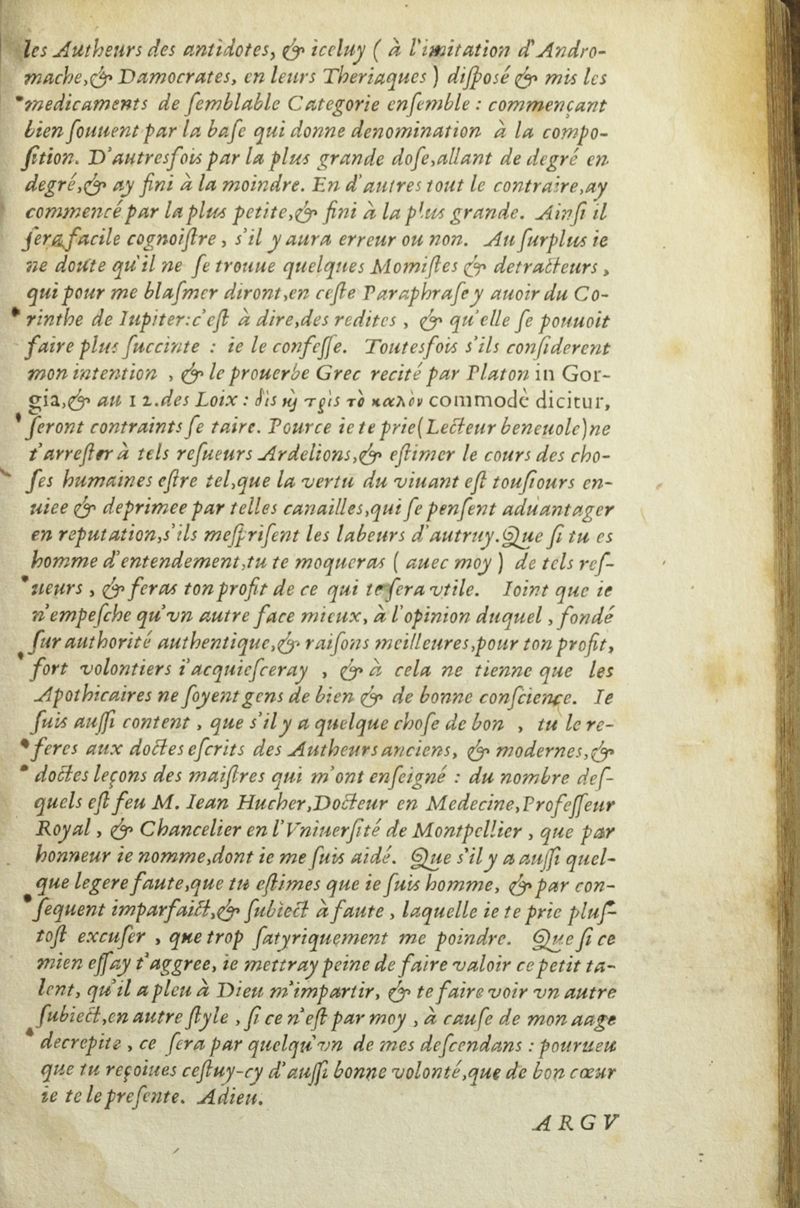 les Autheurs des antidotes, & iceluy ( à l'imitation d'Andro-
mache,& Damocrates, en leurs Theriaques ) diſposé & mis les
medicaments de ſemblable Categorie enſemble : commençant
bien ſouuent par la baſe qui donne denomination à la compo-
ſition. D'autresfois par la plus grande doſe,allant de degré en
degré,& ay fini à la moindre. En d'autres tout le contraire,ay
commencé par la plus petite,& fini à la plus grande. Ainſi il
ſera facile cognoiſtre , s'il y aura erreur ou non. Au ſurplus ie
ne doute qu'il ne ſe trouue quelques Momiſtes & detracteurs ,
qui pour me blaſmer diront,en ceſte Paraphraſe y auoir du Co-
rinthe de Iupiter:c'eſt à dire,des redites , & qu'elle ſe pouuoit
faire plus ſuccinte : ie le confeſſe. Toutesfois s'ils conſiderent
mon intention , & le prouerbe Grec recité par Platon in Gor-
gia,& au 12.des Loix : δὶς ϗ τρὶς τὸ καλὸν commodè dicitur,
ſeront contraints ſe taire. Pource ie te prie(Lecteur beneuole)ne
t'arreſter à tels reſueurs Ardelions,& eſtimer le cours des cho-
ſes humaines eſtre tel,que la vertu du viuant eſt touſiours en-
uiee & deprimee par telles canailles,qui ſe penſent aduantager
en reputation,s'ils meſpriſent les labeurs d'autruy.Que ſi tu es
homme d'entendement,tu te moqueras ( auec moy ) de tels reſ-
ueurs , & feras ton profit de ce qui te ſera vtile. Ioint que ie
n'empeſche qu'vn autre face mieux, à l'opinion duquel , fondé
ſur authorité authentique,& raiſons meilleures,pour ton profit,
fort volontiers i'acquieſceray , & à cela ne tienne que les
Apothicaires ne ſoyent gens de bien & de bonne conſcience. Ie
ſuis auſſi content , que s'il y a quelque choſe de bon , tu le re-
feres aux doctes eſcrits des Autheurs anciens, & modernes,&
doctes leçons des maiſtres qui m'ont enſeigné : du nombre deſ-
quels eſt feu M. Iean Hucher,Docteur en Medecine,Profeſſeur
Royal , & Chancelier en l'Vniuerſité de Montpellier , que par
honneur ie nomme,dont ie me ſuis aidé. Que s'il y a auſſi quel-
que legere faute,que tu eſtimes que ie ſuis homme, & par con-
ſequent imparfaict,& ſubiect à faute , laquelle ie te prie pluſ-
toſt excuſer , que trop ſatyriquement me poindre. Que ſi ce
mien eſſay t'aggree, ie mettray peine de faire valoir ce petit ta-
lent, qu'il a pleu à Dieu m'impartir, & te faire voir vn autre
ſubiect,en autre ſtyle , ſi ce n'eſt par moy , à cauſe de mon aage
decrepite , ce ſera par quelqu'vn de mes deſcendans : pourueu
que tu reçoiues ceſtuy-cy d'auſſi bonne volonté,que de bon cœur
ie te le preſente. Adieu.
ARGV